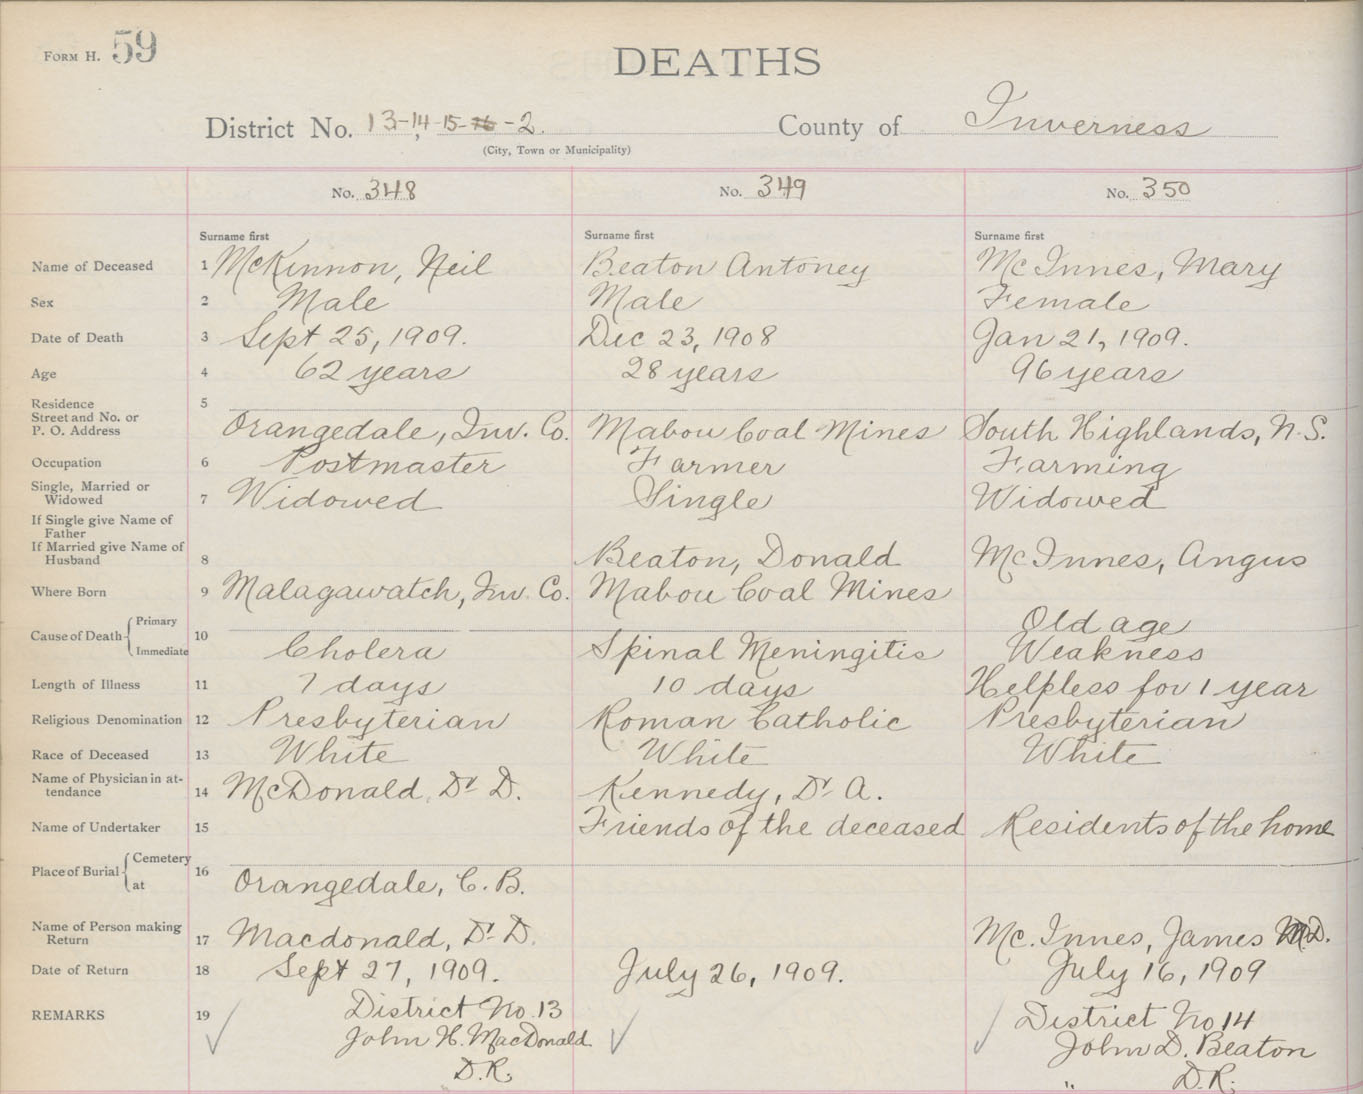 FORM H. 59
DEATHS
District No. 13-14-15-16-2. County of Inverness
(City, Town or Municipality)
No. 348 No. 349 No. 350
Surname first Surname first Surname first
Name of Deceased 1 McKinnon, Neil Beaton Antoney McInnes, Mary
Sex 2 Male Male Female
Date of Death 3 Sept 25, 1909. Dec 23, 1908 Jan 21, 1909.
Age 4 62 years 28 years 96 years
Residence 5
Street and No. or
P. O. Address Orangedale, Inv. Co. Mabou Coal Mines South Highlands, N.S.
Occupation 6 Postmaster Farmer Farming
Single, Married or
Widowed 7 Widowed Single Widowed
If Single give Name of
Father
If Married give Name of
Husband 8 Beaton, Donald McInnes, Angus
Where Born 9 Malagawatch, Inv. Co. Mabou Coal Mines
Cause of Death Primary Old age
Immediate 10 Cholera Spinal Meningitis Weakness
Length of Illness 11 7 days 10 days Helpless for 1 year
Religious Denomination 12 Presbyterian Roman Catholic Presbyterian
Race of Deceased 13 White White White
Name of Physician in at-
tendance 14 McDonald, Dr D. Kennedy, Dr A.
Name of Undertaker 15 Friends of the deceased Residents of the home
Place of Burial Cemetery 16
at Orangedale, C. B.
Name of Person making
Return 17 Macdonald, Dr D. Mc.Innes, James M.D.
Date of Return 18 Sept 27, 1909. July 26, 1909. July 16, 1909
REMARKS 19 District No. 13 District No 14
John H. MacDonald John D. Beaton
D.R. " D.R.